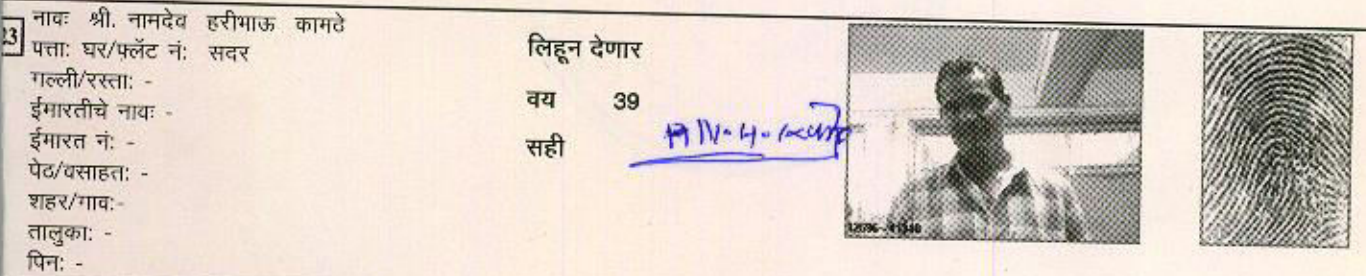 23
नावः श्री. नामदेव हरीभाऊ कामठे
पत्ता: घर/फ्लॅट नं: सदर
गल्ली/रस्ता: -
ईमारतीचे नावः -
ईमारत नं: -
पेठ/वसाहत: -
शहर/गाव:-
तालुका: -
पिन: -
लिहून देणार
वय 39
सही